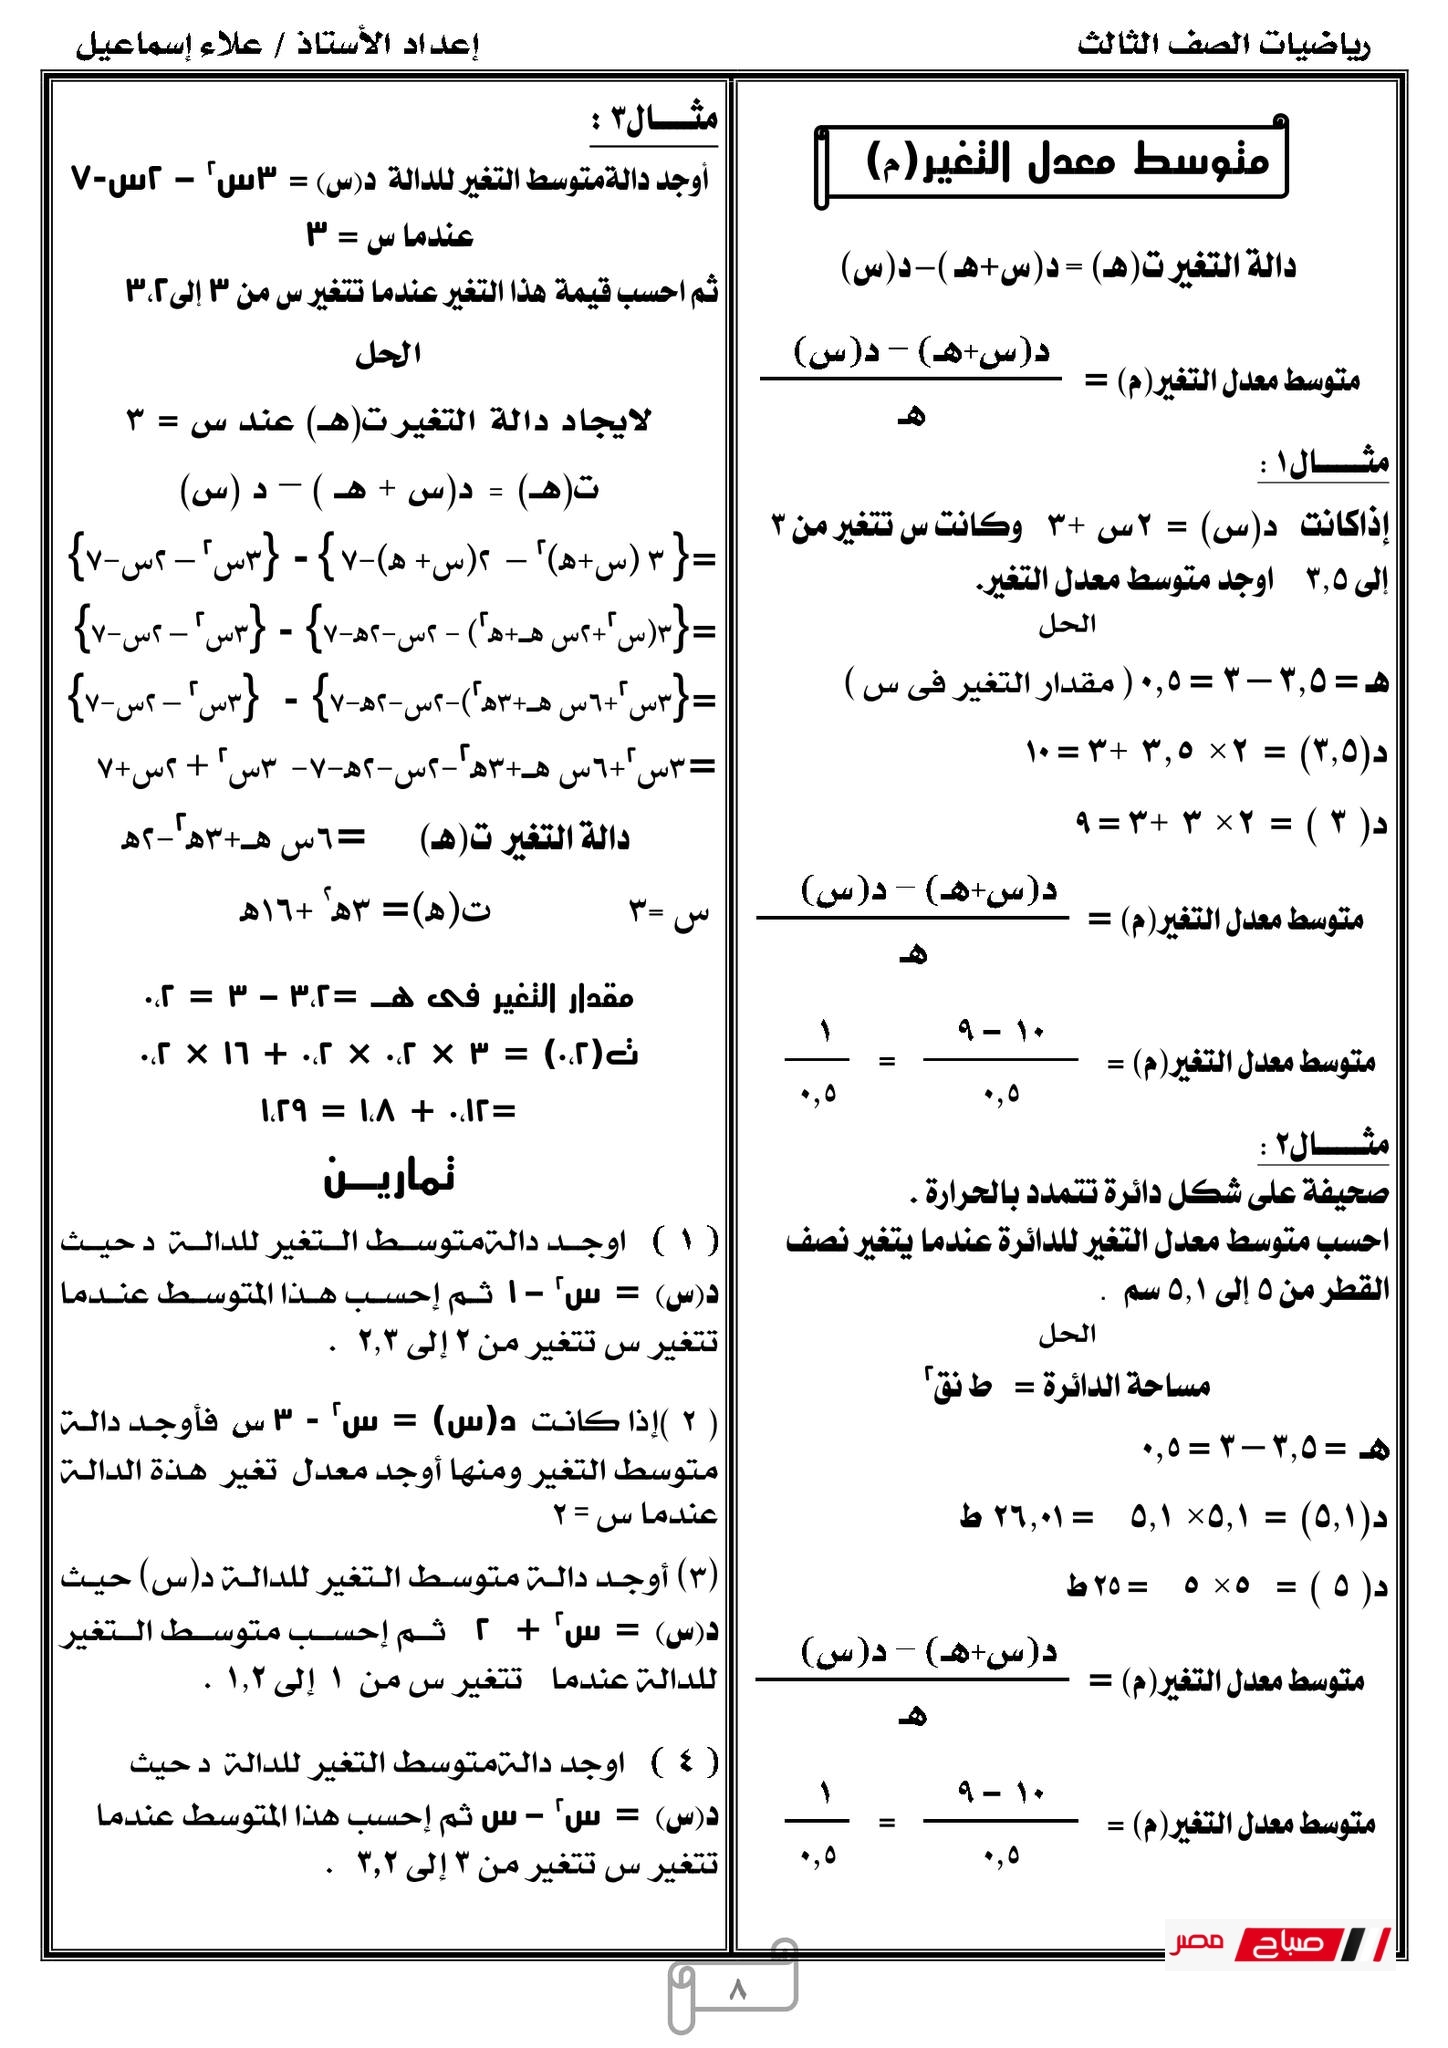 رياضيات الصف الثالث
إعداد الأستاذ / علاء إسماعيل
متوسط معدل التغير(م)
دالة التغير ت(هـ) = د(س+هـ)–د(س)
د(س+هـ) – د(س)
متوسط معدل التغير(م) =
هـ
مثـــال١ :
إذاكانت د(س) = ٢س +٣ وكانت س تتغير من ٣
إلى ٣,٥ اوجد متوسط معدل التغير.
الحل
هـ = ٣,٥ – ٣ = ٠,٥ ( مقدار التغير فى س )
د(٣,٥) = ٢× ٣,٥ +٣ = ١٠
د( ٣ ) = ٢× ٣ +٣ = ٩
د(س+هـ) – د(س)
متوسط معدل التغير(م) =
هـ
١٠ – ٩ ١
متوسط معدل التغير(م) = =
٠,٥ ٠,٥
مثـــال٢ :
صحيفة على شكل دائرة تتمدد بالحرارة .
احسب متوسط معدل التغير للدائرة عندما يتغير نصف
القطر من ٥ إلى ٥,١ سم .
الحل
مساحة الدائرة = ط نق٢
هـ = ٣,٥ – ٣ = ٠,٥
د(٥,١) = ٥,١× ٥,١ = ٢٦,٠١ ط
د( ٥ ) = ٥× ٥ = ٢٥ ط
د(س+هـ) – د(س)
متوسط معدل التغير(م) =
هـ
١٠ – ٩ ١
متوسط معدل التغير(م) = =
٠,٥ ٠,٥
مثـــال٣ :
أوجد دالةمتوسط التغير للدالة د(س) = ٣س٢ – ٢س-٧
عندما س = ٣
ثم احسب قيمة هذا التغير عندما تتغير س من ٣ إلى٣،٢
الحل
لايجاد دالة التغير ت(هـ) عند س = ٣
ت(هـ) = د(س + هـ ) – د (س)
={ ٣ (س+هـ)٢ – ٢(س+ هـ)-٧ } - {٣س٢ – ٢س-٧}
={٣(س٢+٢س هـ+هـ٢) - ٢س-٢هـ-٧} - {٣س٢ – ٢س-٧}
={٣س٢+٦س هـ+٣هـ٢)-٢س-٢هـ-٧} - {٣س٢ – ٢س-٧}
=٣س٢+٦س هـ+٣هـ٢-٢س-٢هـ-٧- ٣س٢ + ٢س+٧
دالة التغير ت(هـ) =٦س هـ+٣هـ٢-٢هـ
س =٣ ت(هـ)= ٣هـ٢ +١٦هـ
مقدار التغير فى هـ =٣،٢ – ٣ = ٠،٢
ت(٠،٢) = ٣ × ٠،٢ × ٠،٢ + ١٦ × ٠،٢
=٠،١٢ + ١،٨ = ١،٢٩
تماريـن
( ١ ) اوجد دالةمتوسط التغير للدالة د حيث
د(س) = س٢ – ١ ثم إحسب هذا المتوسط عندما
تتغير س تتغير من ٢ إلى ٢,٣ .
( ٢ )إذا كانت د(س) = س٢ - ٣ س فأوجد دالة
متوسط التغير ومنها أوجد معدل تغير هذة الدالة
عندما س = ٢
(٣) أوجد دالة متوسط التغير للدالة د(س) حيث
د(س) = س٢ + ٢ ثم إحسب متوسط التغير
للدالة عندما تتغير س من ١ إلى ١,٢ .
( ٤ ) اوجد دالةمتوسط التغير للدالة د حيث
د(س) = س٢ – س ثم إحسب هذا المتوسط عندما
تتغير س تتغير من ٣ إلى ٣,٢ .
صباح مصر
٨